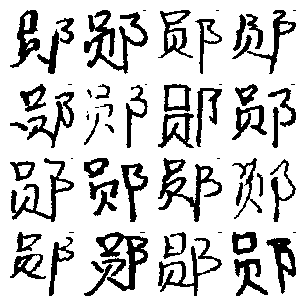 郧郧郧郧
郧郧郧郧
郧郧郧郧
郧郧郧郧